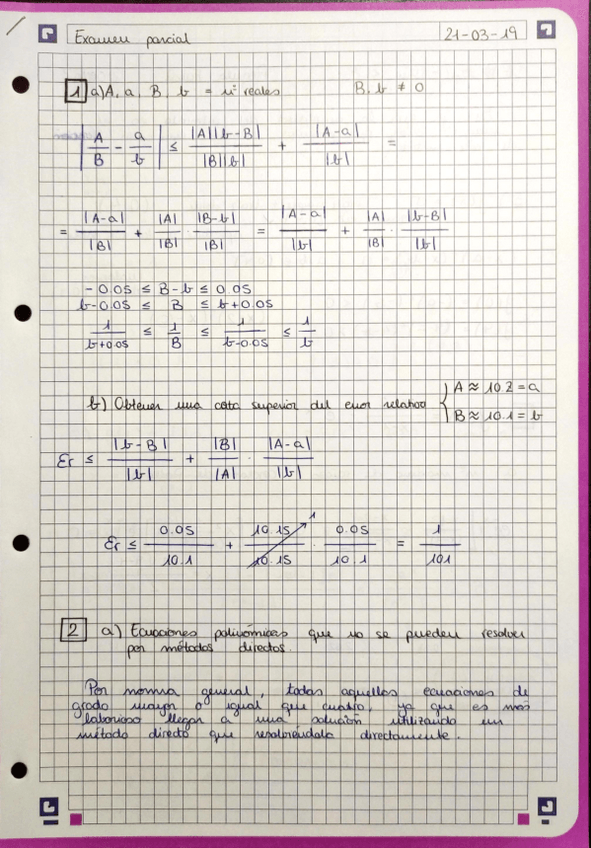 Examen parcial 21-03-19
1 a) A, a, B, b = nº reales B, b ≠ 0
| A/B - a/b | ≤ |A||b-B| / |B||b| + |A-a| / |b| =
= |A-a| / |B| + |A| / |B| · |B-b| / |B| = |A-a| / |b| + |A| / |B| · |b-B| / |b|
- 0.05 ≤ B-b ≤ 0.05
b-0.05 ≤ B ≤ b+0.05
1 / b+0.05 ≤ 1 / B ≤ 1 / b-0.05 ≤ 1 / b
b) Obtener una cota superior del error relativo { A ≈ 10.2 = a
B ≈ 10.1 = b
Er ≤ |b-B| / |b| + |B| / |A| · |A-a| / |b|
Er ≤ 0.05 / 10.1 + 10.15 / 10.15 1 · 0.05 / 10.1 = 1 / 101
2 a) Ecuaciones polinómicas que no se pueden resolver
por métodos directos.
Por norma general, todas aquellas ecuaciones de
grado mayor o igual que cuatro, ya que es más
laborioso llegar a una solución utilizando un
método directo que resolviéndola directamente.